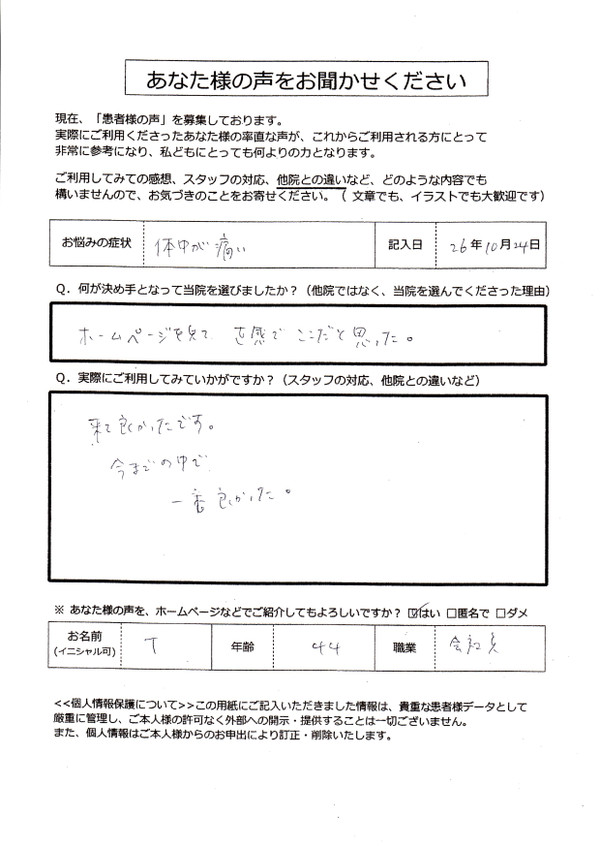 あなた様の声をお聞かせください
現在、「患者様の声」を募集しております。
実際にご利用くださったあなた様の率直な声が、これからご利用される方にとって
非常に参考になり、私どもにとっても何よりの力となります。
ご利用してみての感想、スタッフの対応、他院との違いなど、どのような内容でも
構いませんので、お気づきのことをお寄せください。（ 文章でも、イラストでも大歓迎です）
お悩みの症状 体中が痛い 記入日 26年10月24日
Q．何が決め手となって当院を選びましたか？（他院ではなく、当院を選んでくださった理由）
ホームページを見て 直感で ここだと思った。
Q．実際にご利用してみていかがですか？（スタッフの対応、他院との違いなど）
来て良かったです。
今までの中で
一番良かった。
※ あなた様の声を、ホームページなどでご紹介してもよろしいですか？ ☑はい □匿名で □ダメ
お名前 T 年齢 44 職業 会社員
(イニシャル可)
<<個人情報保護について>>この用紙にご記入いただきました情報は、貴重な患者様データとして
厳重に管理し、ご本人様の許可なく外部への開示・提供することは一切ございません。
また、個人情報はご本人様からのお申出により訂正・削除いたします。